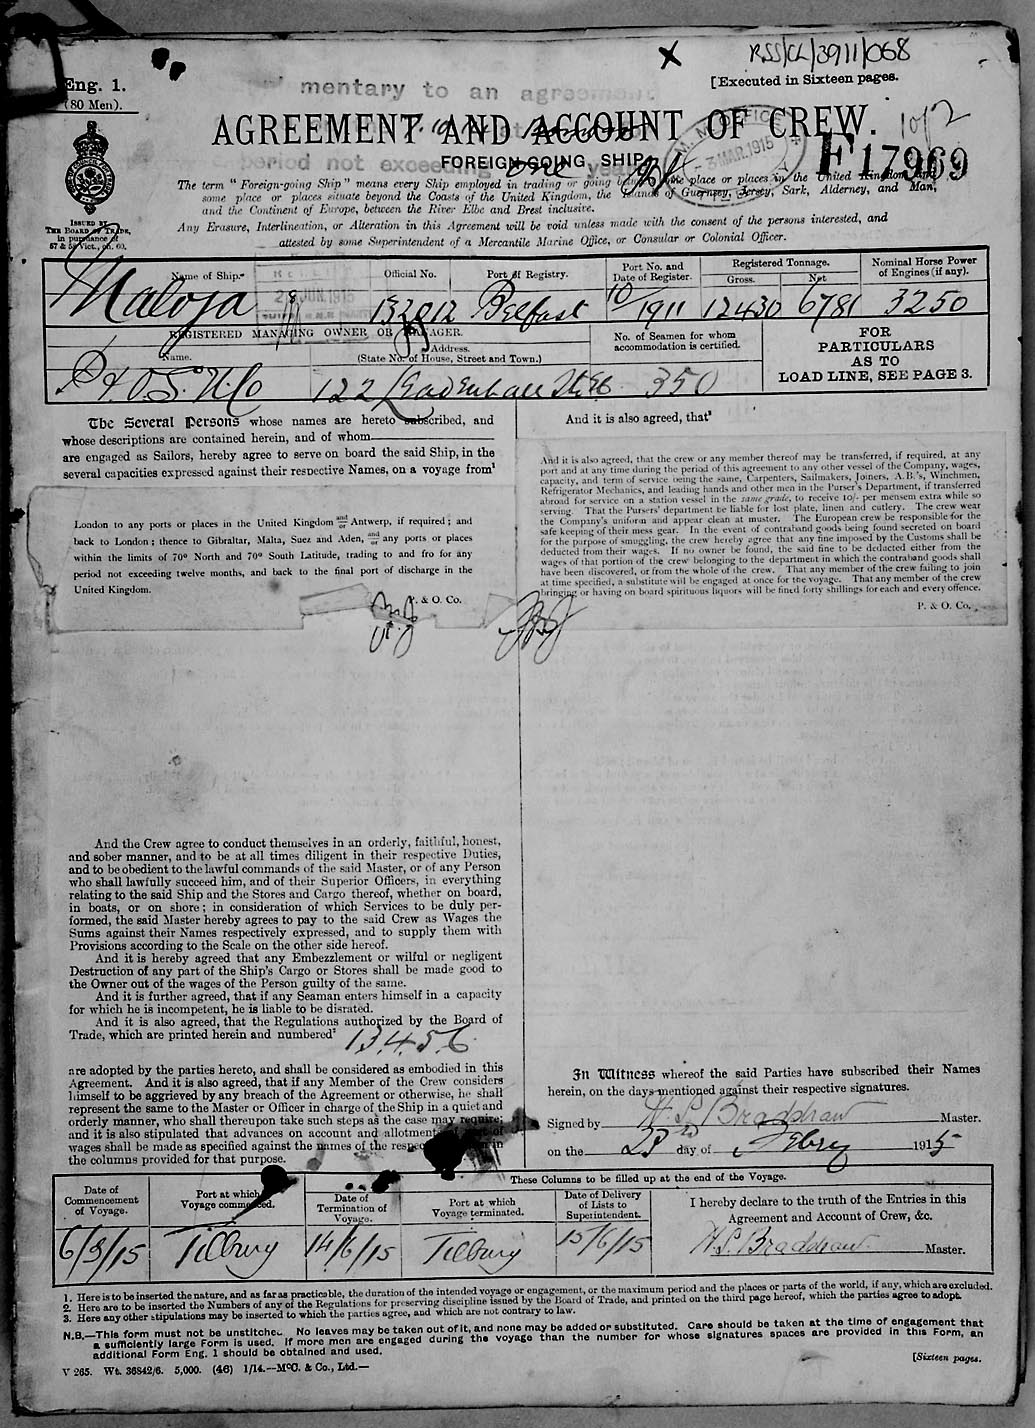 RSS/CL/3911/068
Eng. 1.
(80 Men).
[Executed in Sixteen pages.
mentary to an agreement
AGREEMENT AND ACCOUNT OF CREW.
1 of 2
FOREIGN-GOING SHIP.
period not exceeding one year
M. M. OFFICE
3 MAR. 1915
F17969
The term "Foreign-going Ship" means every Ship employed in trading or going between some place or places in the United Kingdom and
some place or places situate beyond the Coasts of the United Kingdom, the Islands of Guernsey, Jersey, Sark, Alderney, and Man,
and the Continent of Europe, between the River Elbe and Brest inclusive.
Any Erasure, Interlineation, or Alteration in this Agreement will be void unless made with the consent of the persons interested, and
attested by some Superintendent of a Mercantile Marine Office, or Consular or Colonial Officer.
ISSUED BY
THE BOARD OF TRADE,
in pursuance of
57 & 58 Vict., ch. 60.
Name of Ship.
Official No.
Port of Registry.
Port No. and
Date of Register.
Registered Tonnage.
Gross.
Net
Nominal Horse Power
of Engines (if any).
JUN. 1915
Maloja
132012
Belfast
10/1911
12430
6781
3250
REGISTERED MANAGING OWNER OR MANAGER.
Name.
Address.
(State No. of House, Street and Town.)
No. of Seamen for whom
accommodation is certified.
FOR
PARTICULARS
AS TO
LOAD LINE, SEE PAGE 3.
P & O. S. N. Co
122 Leadenhall St EC
350
The Several Persons whose names are hereto subscribed, and
whose descriptions are contained herein, and of whom
are engaged as Sailors, hereby agree to serve on board the said Ship, in the
several capacities expressed against their respective Names, on a voyage from1
London to any ports or places in the United Kingdom and/or Antwerp, if required; and
back to London; thence to Gibraltar, Malta, Suez and Aden, and/or any ports or places
within the limits of 70° North and 70° South Latitude, trading to and fro for any
period not exceeding twelve months, and back to the final port of discharge in the
United Kingdom.
P. & O. Co.
And it is also agreed, that3
And it is also agreed, that the crew or any member thereof may be transferred, if required, at any
port and at any time during the period of this agreement to any other vessel of the Company, wages,
capacity, and term of service being the same, Carpenters, Sailmakers, Joiners, A.B.'s, Winchmen,
Refrigerator Mechanics, and leading hands and other men in the Purser's Department, if transferred
abroad for service on a station vessel in the same grade, to receive 10/- per mensem extra while so
serving. That the Pursers' department be liable for lost plate, linen and cutlery. The crew wear
the Company's uniform and appear clean at muster. The European crew be responsible for the
safe keeping of their mess gear. In the event of contraband goods being found secreted on board
for the purpose of smuggling, the crew hereby agree that any fine imposed by the Customs shall be
deducted from their wages. If no owner be found, the said fine to be deducted either from the
wages of that portion of the crew belonging to the department in which the contraband goods shall
have been discovered, or from the whole of the crew. That any member of the crew failing to join
at time specified, a substitute will be engaged at once for the voyage. That any member of the crew
bringing or having on board spirituous liquors will be fined forty shillings for each and every offence.
P. & O. Co.
And the Crew agree to conduct themselves in an orderly, faithful, honest,
and sober manner, and to be at all times diligent in their respective Duties,
and to be obedient to the lawful commands of the said Master, or of any Person
who shall lawfully succeed him, and of their Superior Officers, in everything
relating to the said Ship and the Stores and Cargo thereof, whether on board,
in boats, or on shore; in consideration of which Services to be duly per-
formed, the said Master hereby agrees to pay to the said Crew as Wages the
Sums against their Names respectively expressed, and to supply them with
Provisions according to the Scale on the other side hereof.
And it is hereby agreed that any Embezzlement or wilful or negligent
Destruction of any part of the Ship's Cargo or Stores shall be made good to
the Owner out of the wages of the Person guilty of the same.
And it is further agreed, that if any Seaman enters himself in a capacity
for which he is incompetent, he is liable to be disrated.
And it is also agreed, that the Regulations authorized by the Board of
Trade, which are printed herein and numbered2 1.3.4.5.6.
are adopted by the parties hereto, and shall be considered as embodied in this
Agreement. And it is also agreed, that if any Member of the Crew considers
himself to be aggrieved by any breach of the Agreement or otherwise, he shall
represent the same to the Master or Officer in charge of the Ship in a quiet and
orderly manner, who shall thereupon take such steps as the case may require;
and it is also stipulated that advances on account and allotment of part of
wages shall be made as specified against the names of the respec in
the columns provided for that purpose.
In Witness whereof the said Parties have subscribed their Names
herein, on the days mentioned against their respective signatures.
Signed by H. S. Bradshaw Master.
on the 23rd day of Febry 1915
These Columns to be filled up at the end of the Voyage.
Date of
Commencement
of Voyage.
Port at which
Voyage commenced.
Date of
Termination of
Voyage.
Port at which
Voyage terminated.
Date of Delivery
of Lists to
Superintendent.
I hereby declare to the truth of the Entries in this
Agreement and Account of Crew, &c.
6/3/15
Tilbury
14/6/15
Tilbury
15/6/15
H. S. Bradshaw Master.
1. Here is to be inserted the nature, and as far as practicable, the duration of the intended voyage or engagement, or the maximum period and the places or parts of the world, if any, which are excluded.
2. Here are to be inserted the Numbers of any of the Regulations for preserving discipline issued by the Board of Trade, and printed on the third page hereof, which the parties agree to adopt.
3. Here any other stipulations may be inserted to which the parties agree, and which are not contrary to law.
N.B.—This form must not be unstitched. No leaves may be taken out of it, and none may be added or substituted. Care should be taken at the time of engagement that
a sufficiently large Form is used. If more men are engaged during the voyage than the number for whose signatures spaces are provided in this Form, an
additional Form Eng. 1 should be obtained and used.
[Sixteen pages.
V 265. Wt. 36842/6. 5,000. (46) 1/14.—McC. & Co., Ltd.—